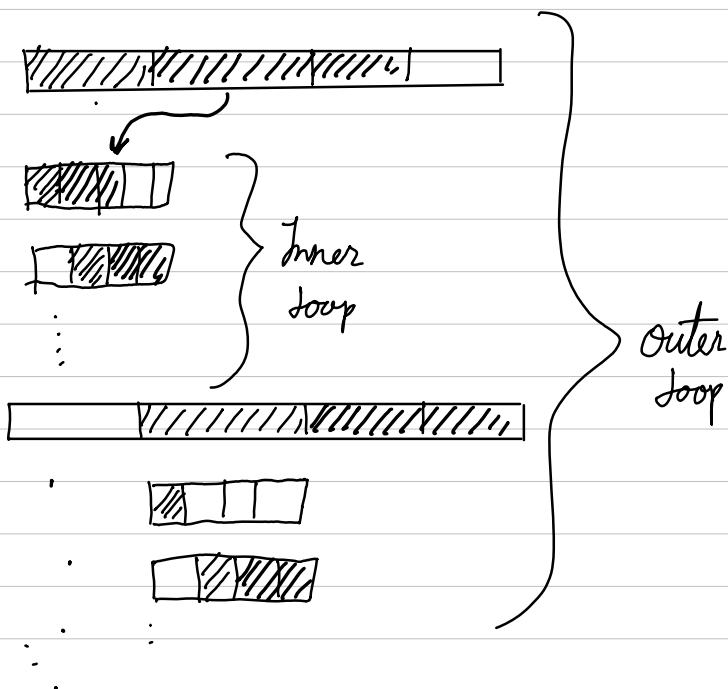 Inner
Loop
Outer
Loop